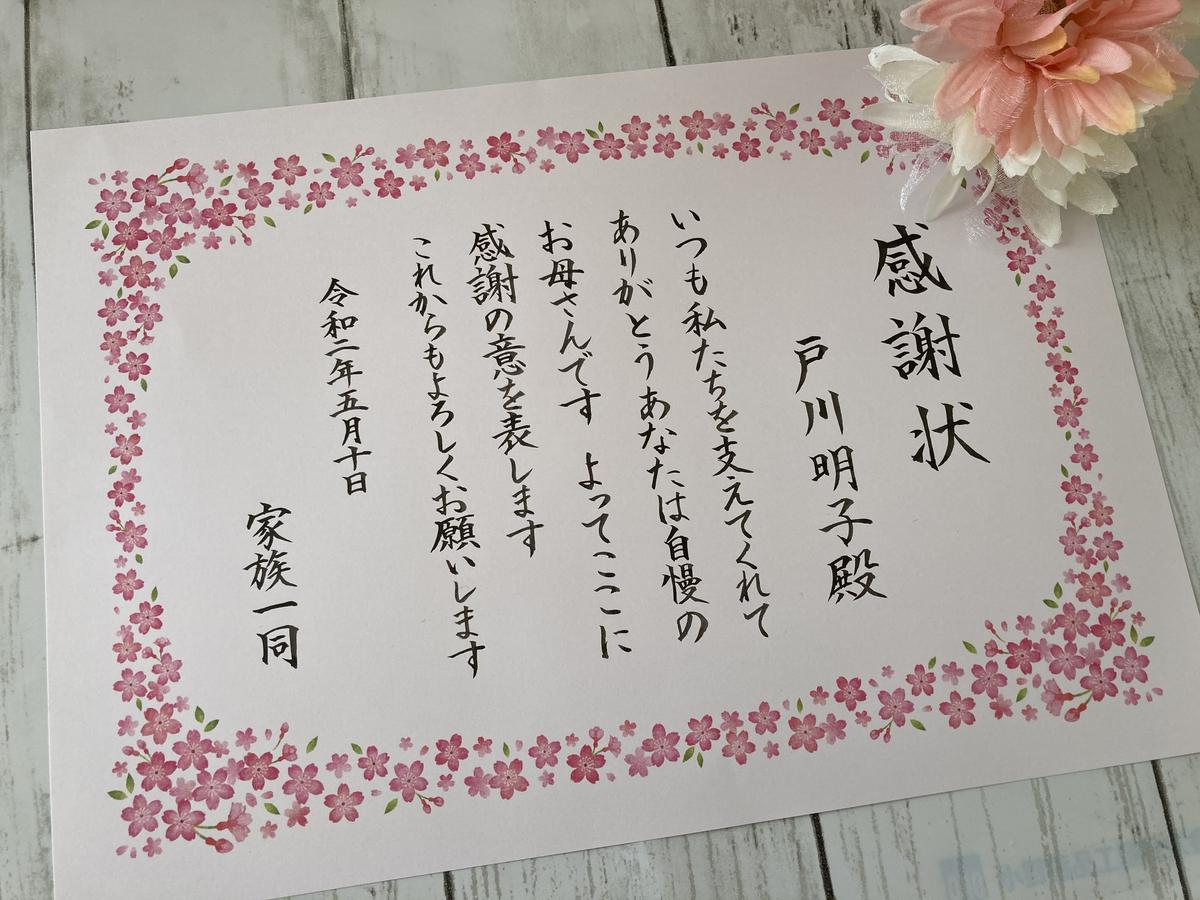 感謝状
戸川明子殿
いつも私たちを支えてくれて
ありがとうあなたは自慢の
お母さんです よってここに
感謝の意を表します
これからもよろしくお願いします
令和二年五月十日
家族一同